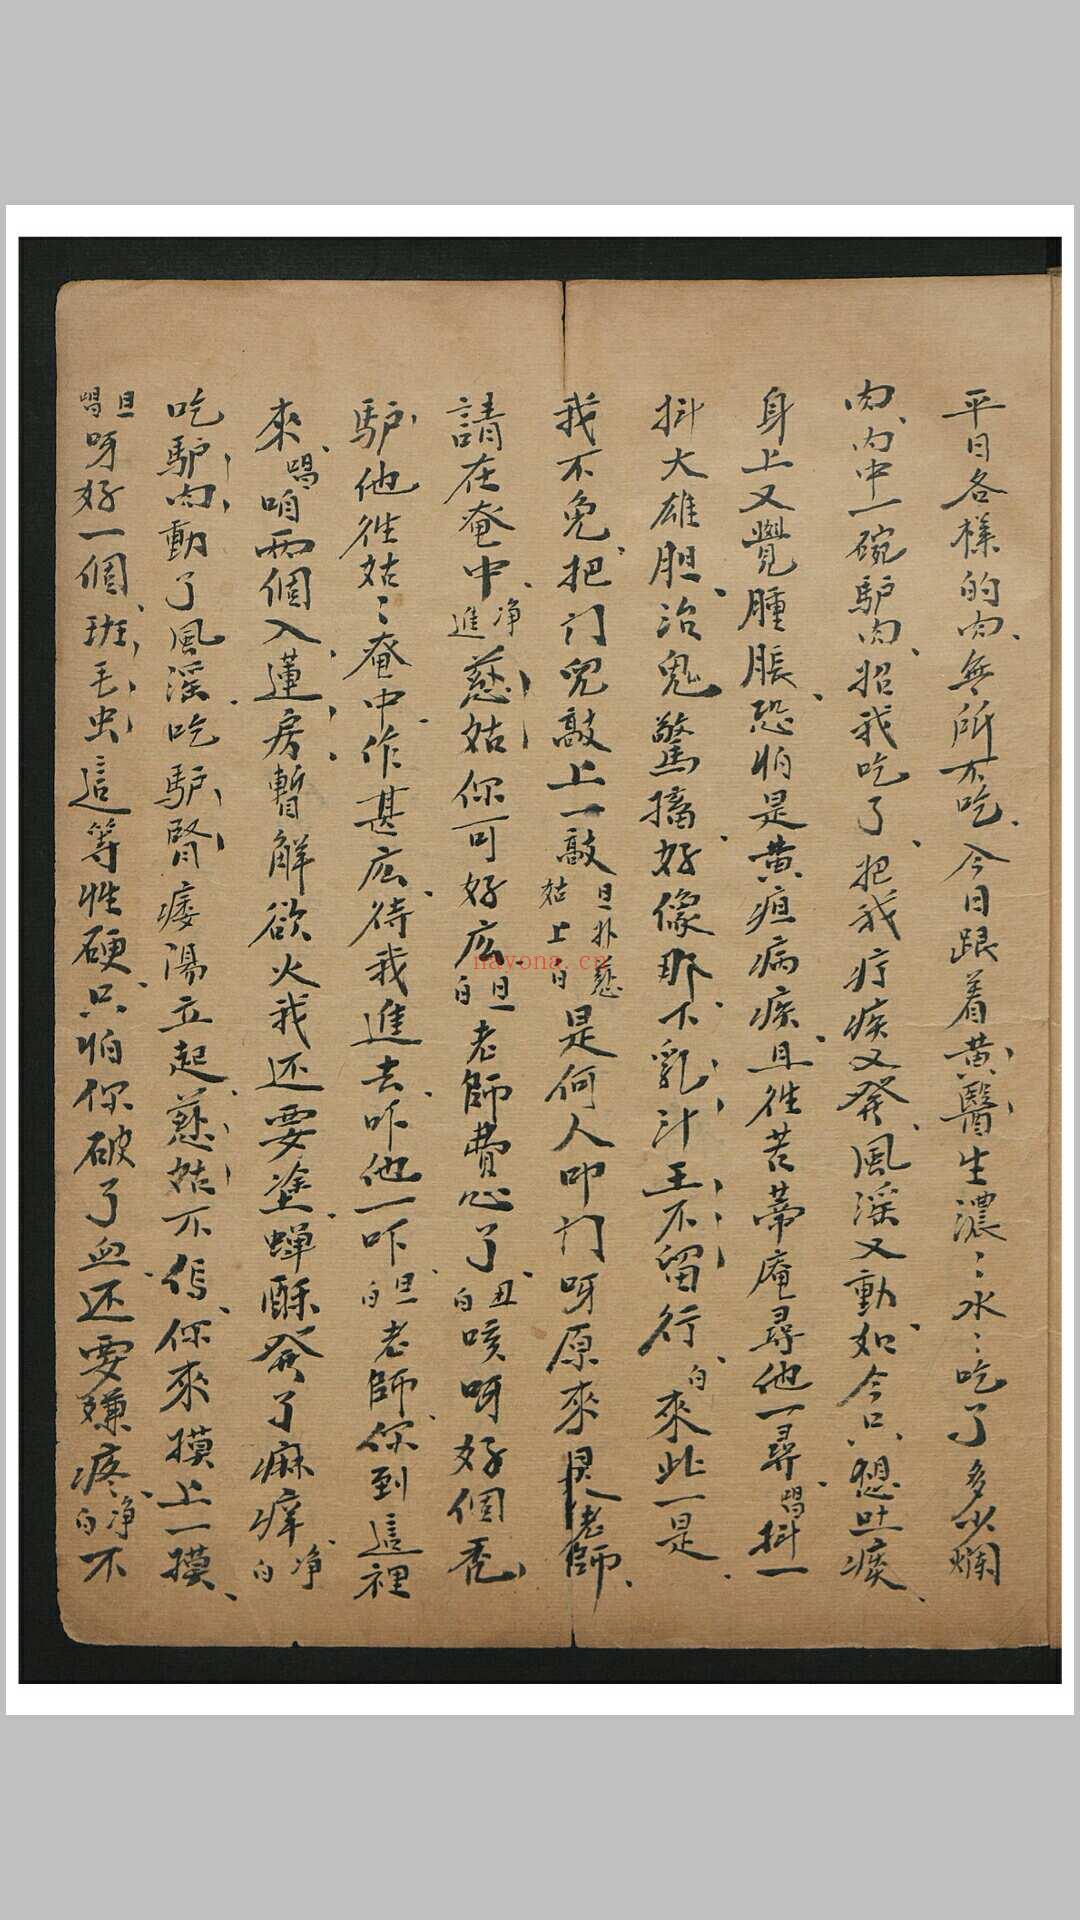 平日各樣的肉無所不吃今日跟着黄醫生濃〻水〻吃了多少爛
肉内中一碗驴肉招我吃了把我疔疾又發風淫又動如今只想吐痰
身上又覺腫脹恐怕是黄疸病疾且往苦蒂庵尋他一尋唱抖一
抖大雄胆治鬼驚搐好像那下乳汁王不留行白來此一是
我不免把门兒敲上一敲旦扑慈姑上白是何人叩门呀原來是老師
請在奄中净進慈姑你可好庅旦白老師費心了丑白咳呀好個秃
驴他往姑〻奄中作甚庅待我進去咋他一咋旦白老師你到這裡
來唱咱两個入蓮房暫解欲火我还要塗蟬酥發了麻痒净白
吃驴肉動了風淫吃驴腎痿陽立起慈姑不信你來摸上一摸
旦唱呀好一個班毛虫這等性硬只怕你破了血还要嫌疼净白不
nayona.cn